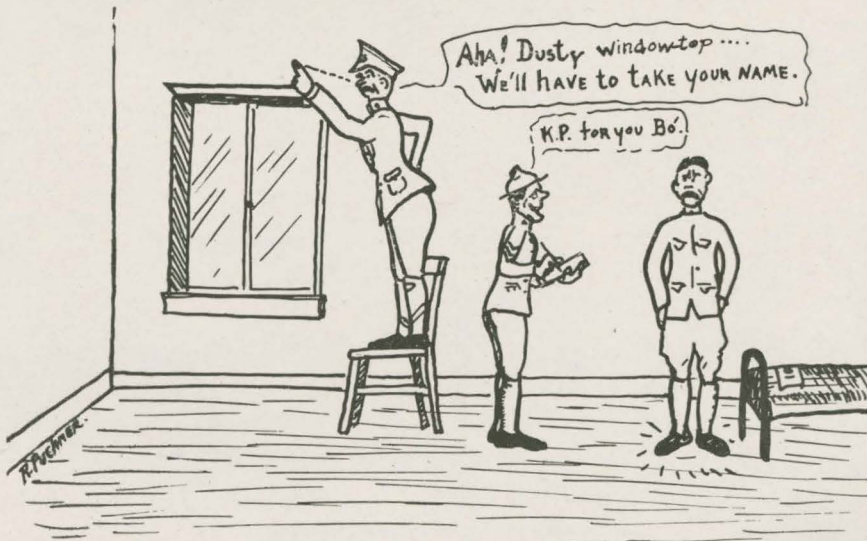 Aha! Dusty window-top ....
We'll have to take your name.
K.P. for you Bo'.
R. Puchner.